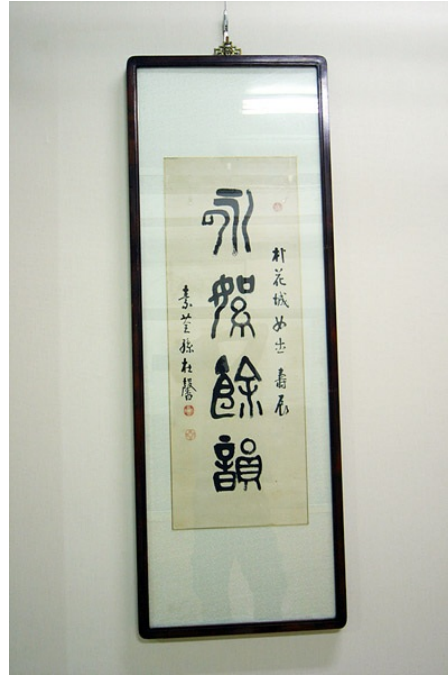 朴花城女士 壽辰
咏絮餘韻
素荃孫在馨